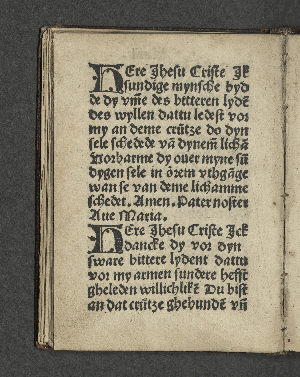 HEre Jhesu Criste Jk
sundige mynsche byd
de dy vm̄e des bitteren lydẽ
des wyllen dattu ledest vor
my an deme crütze do dyn
sele schedede vã dynem̃ lichã
Vorbarme dy ouer myne sũ
dygen sele in örem vthgãge
wan se van deme lichamme
schedet. Amen. Pater noster
Aue Maria.
HEre Jhesu Criste Jck
dancke dy vor dyn
sware bittere lydent dattu
vor my armen sundere hefft
gheleden willichlikẽ Du bist
an dat crütze ghebundẽ vñ